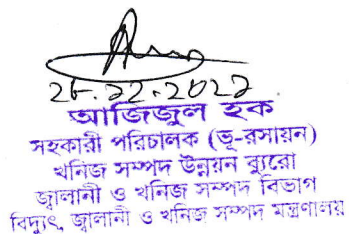 ২৮.১২.২০২২
আজিজুল হক
সহকারী পরিচালক (ভূ-রসায়ন)
খনিজ সম্পদ উন্নয়ন ব্যুরো
জ্বালানী ও খনিজ সম্পদ বিভাগ
বিদ্যুৎ, জ্বালানী ও খনিজ সম্পদ মন্ত্রণালয়